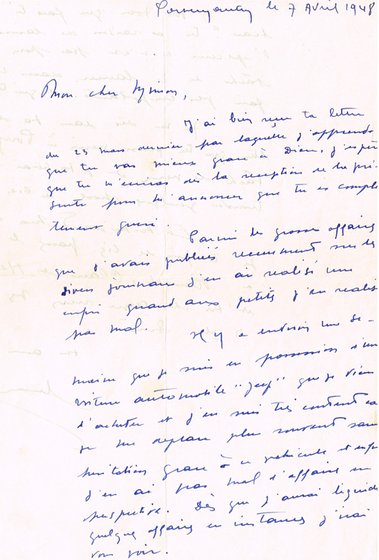 le 7 Avril 1948
Mon cher
J'ai bien reçu ta lettre
du 23 mars dernier par laquelle j'apprends
que tu vas mieux grace à Dieu, j'espère
que tu m'écriras dès la reception de la pré
sente pour m'annoncer que tu es complè
tement gueri.
Parmi les grosses affaires
que j'avais publiées recemment sur les
divers journaux j'en ai realisé une
enfin quand aux petits j'en realise
pas mal. Il y a environ une se-
maine que je suis en possession d'une
voiture automobile "Jeep" que je viens
d'acheter et j'en suis très content car
je me deplace plus souvent sans
hesitations grace à ce vehicule et enfin
j'en ai pas mal d'affaires en
perspective. Dès que j'aurai liquidé
quelques affaires en instances j'irai
vous voir.